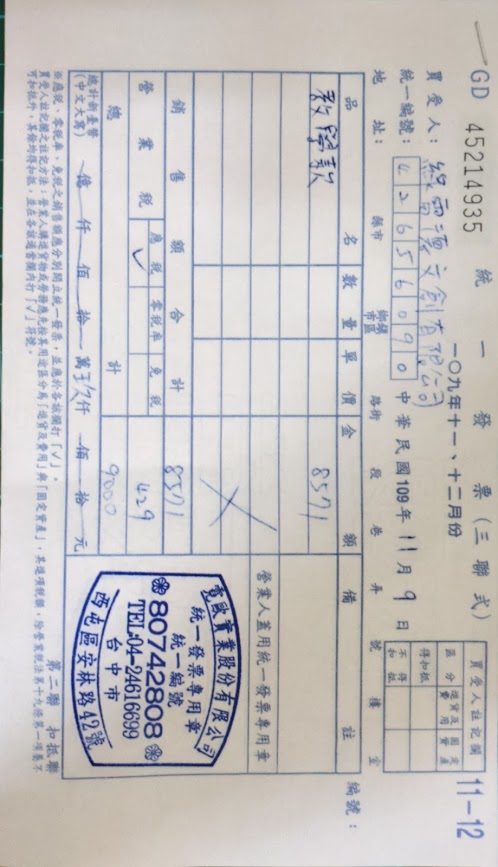 GD 45214935 統一發票(三聯式)
一〇九年十一、十二月份
11-12
買受人註記欄
區分 進貨及費用 固定資產
得扣抵
不得扣抵
買受人: 綠雷德文創有限公司
統一編號: 42656090 中華民國109年11月9日
地址: 縣市 鄉鎮市區 路街 段 巷 弄 號 樓 室
品名 數量 單價 金額 備註 編號:
教學款 8571
營業人蓋用統一發票專用章
銷售額合計 8571
營業稅 應稅 ✓ 零稅率 免稅 429
總計 9000
總計新臺幣(中文大寫) 億 仟 佰 拾 萬 玖 仟 佰 拾 元
霓歐實業股份有限公司
統一發票專用章
統一編號
80742808
TEL:04-24616699
台中市
西屯區安林路42號
※應稅、零稅率、免稅之銷售額應分別開立統一發票,並應於各該欄打「✓」。
第二聯 扣抵聯
買受人註記欄之註記方法:營業人購進貨物或勞務應先按其用途區分為「進貨及費用」與「固定資產」,其進項稅額,除營業稅法第十九條第一項屬不
可扣抵外,其餘均得扣抵,並在各該適當欄內打「✓」符號。